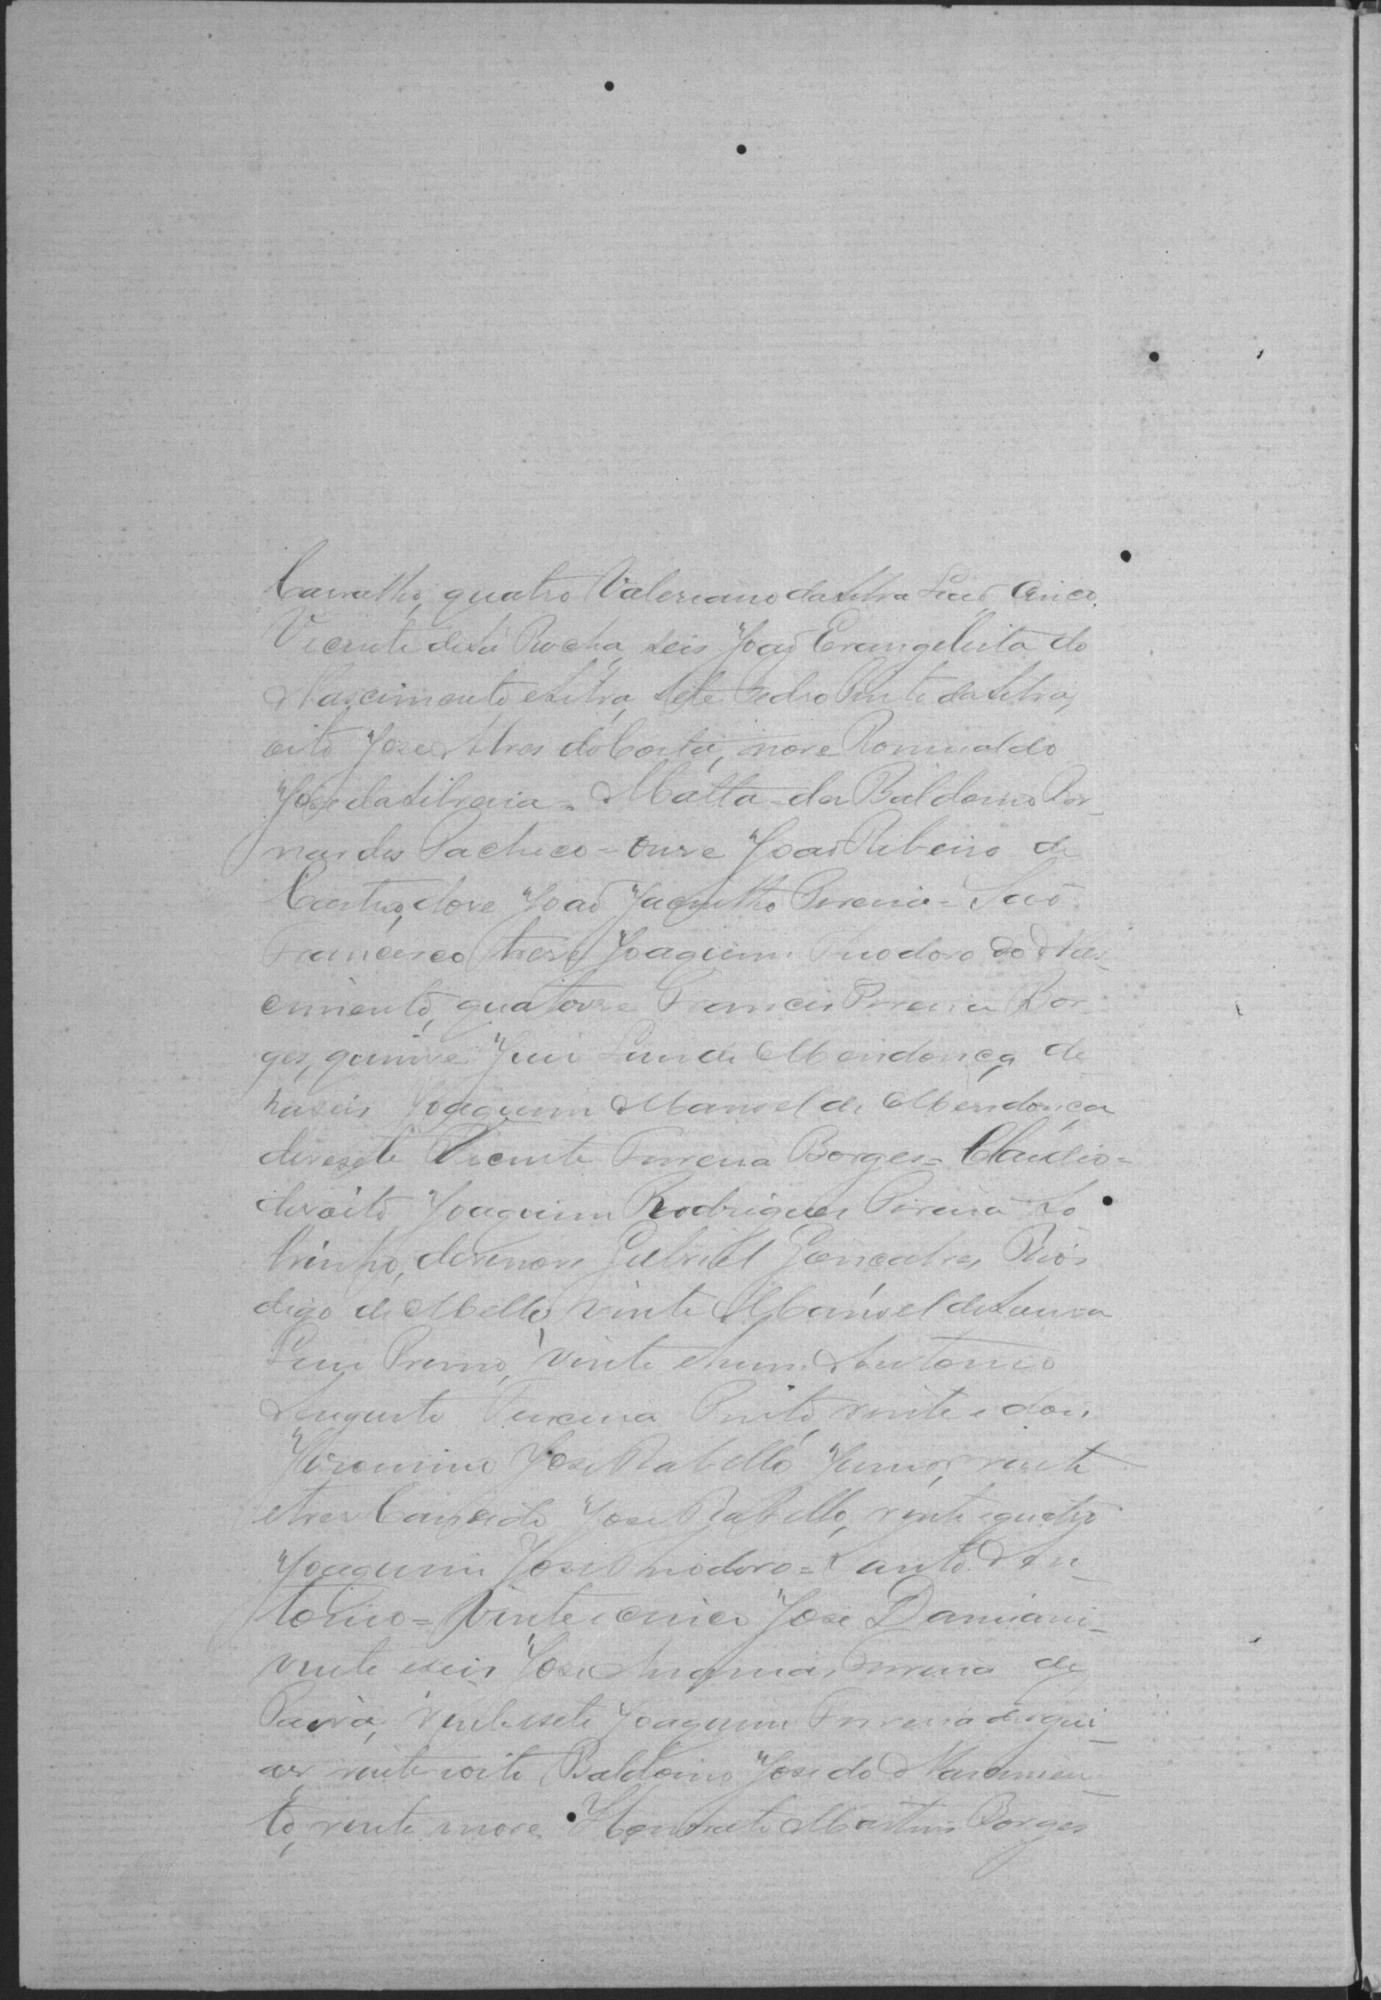 Carvalho, quatro Valeriano da Silva Leão, Cinco,
Vicente de Sá Rocha, seis João Evangelista do
Nascimento e Silva, sete Pedro Pinto da Silva,
oito José Alves da Costa, nove Romualdo
José da Silveira = Matta = des Baldoino Ber-
nardes Pacheco = onze João Ribeiro de
Castro, doze João Jacintho Pereira = São
Francisco treze Joaquim Theodoro do Nas-
cimento, quatorze Francis Pereira Bor-
ges, quinze Luis de Mendonça, de
haseis Joaquim Manoel de Mendonça
dezesete Vicente Ferreira Borges = Claudio =
dezoito Joaquim Rodrigues Pereira So
brinho, dezenove Gabriel Gonçalves Rios
digo de Mello, vinte Manoel de Souza
Primo, vinte e hum Antonio
Augusto Teixeira Pinto, vinte e dois
Jeronimo José Rabello Junior, vinte
e tres Candido José Rabello, vinte e quatro
Joaquim José Theodoro = Santo An-
tonio = Vinte e cinco José Damiani-
vinte e seis José Pereira de
Paiva, Vinte e sete Joaquim Ferreira de Agui-
ar vinte e oito Baldoino José do Nascimen-
to, vinte nove Martins Borges